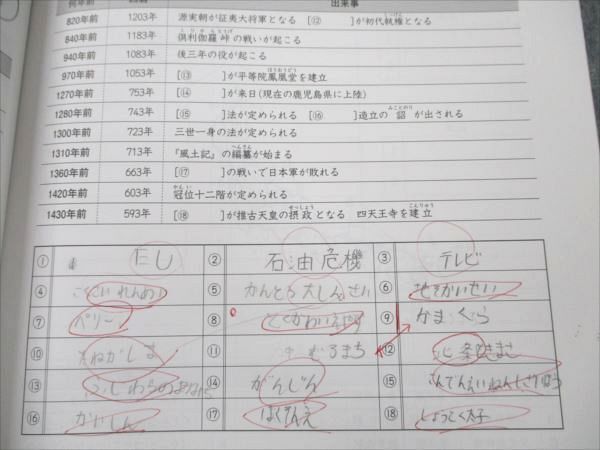 何年前 西暦 出来事
820年前 1203年 源実朝が征夷大将軍となる [⑫ ]が初代執権となる
840年前 1183年 倶利伽羅峠の戦いが起こる
940年前 1083年 後三年の役が起こる
970年前 1053年 [⑬ ]が平等院鳳凰堂を建立
1270年前 753年 [⑭ ]が来日(現在の鹿児島県に上陸)
1280年前 743年 [⑮ ]法が定められる [⑯ ]造立の詔が出される
1300年前 723年 三世一身の法が定められる
1310年前 713年 『風土記』の編纂が始まる
1360年前 663年 [⑰ ]の戦いで日本軍が敗れる
1420年前 603年 冠位十二階が定められる
1430年前 593年 [⑱ ]が推古天皇の摂政となる 四天王寺を建立
① ② 石油危機 ③ テレビ
④ こくさいれんめい ⑤ かんとう大しんさい ⑥ ちそかいせい
⑦ ペリー ⑧ とくがわいえやす ⑨ かまくら
⑩ たねがしま ⑪ むろまち ⑫
⑬ ふじわらの ⑭ がんじん ⑮ こんでんえいねんしざいほう
⑯ ⑰ はくすんえ ⑱ しょうとく太子